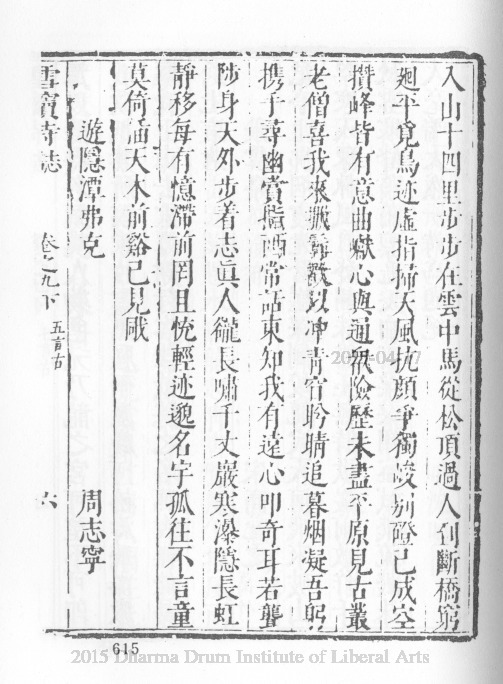 入山十四里步步在雲中馬從松頂過人向斷橋窮
廻平覓鳥迹虛指掃天風抗顏爭獨峻刷磴已成空
攢峰皆有意曲巘心與通眾險歷未盡平原見古叢
老僧喜我來 以冲青穹聆晴追暮烟凝吾躬
携手尋幽賞指西常話東知我有遠心叩奇耳若聾
陟身天外步着志眞人 長嘯千丈巖寒瀑隱長虹
靜移每有憶滯前罔且恍輕迹邈名字孤往不言童
莫倚涵天木前谿已見戙
遊隱潭弗克 周志寧
雪竇寺誌 卷之九下 五言古 六
615
2015 Dharma Drum Institute of Liberal Arts